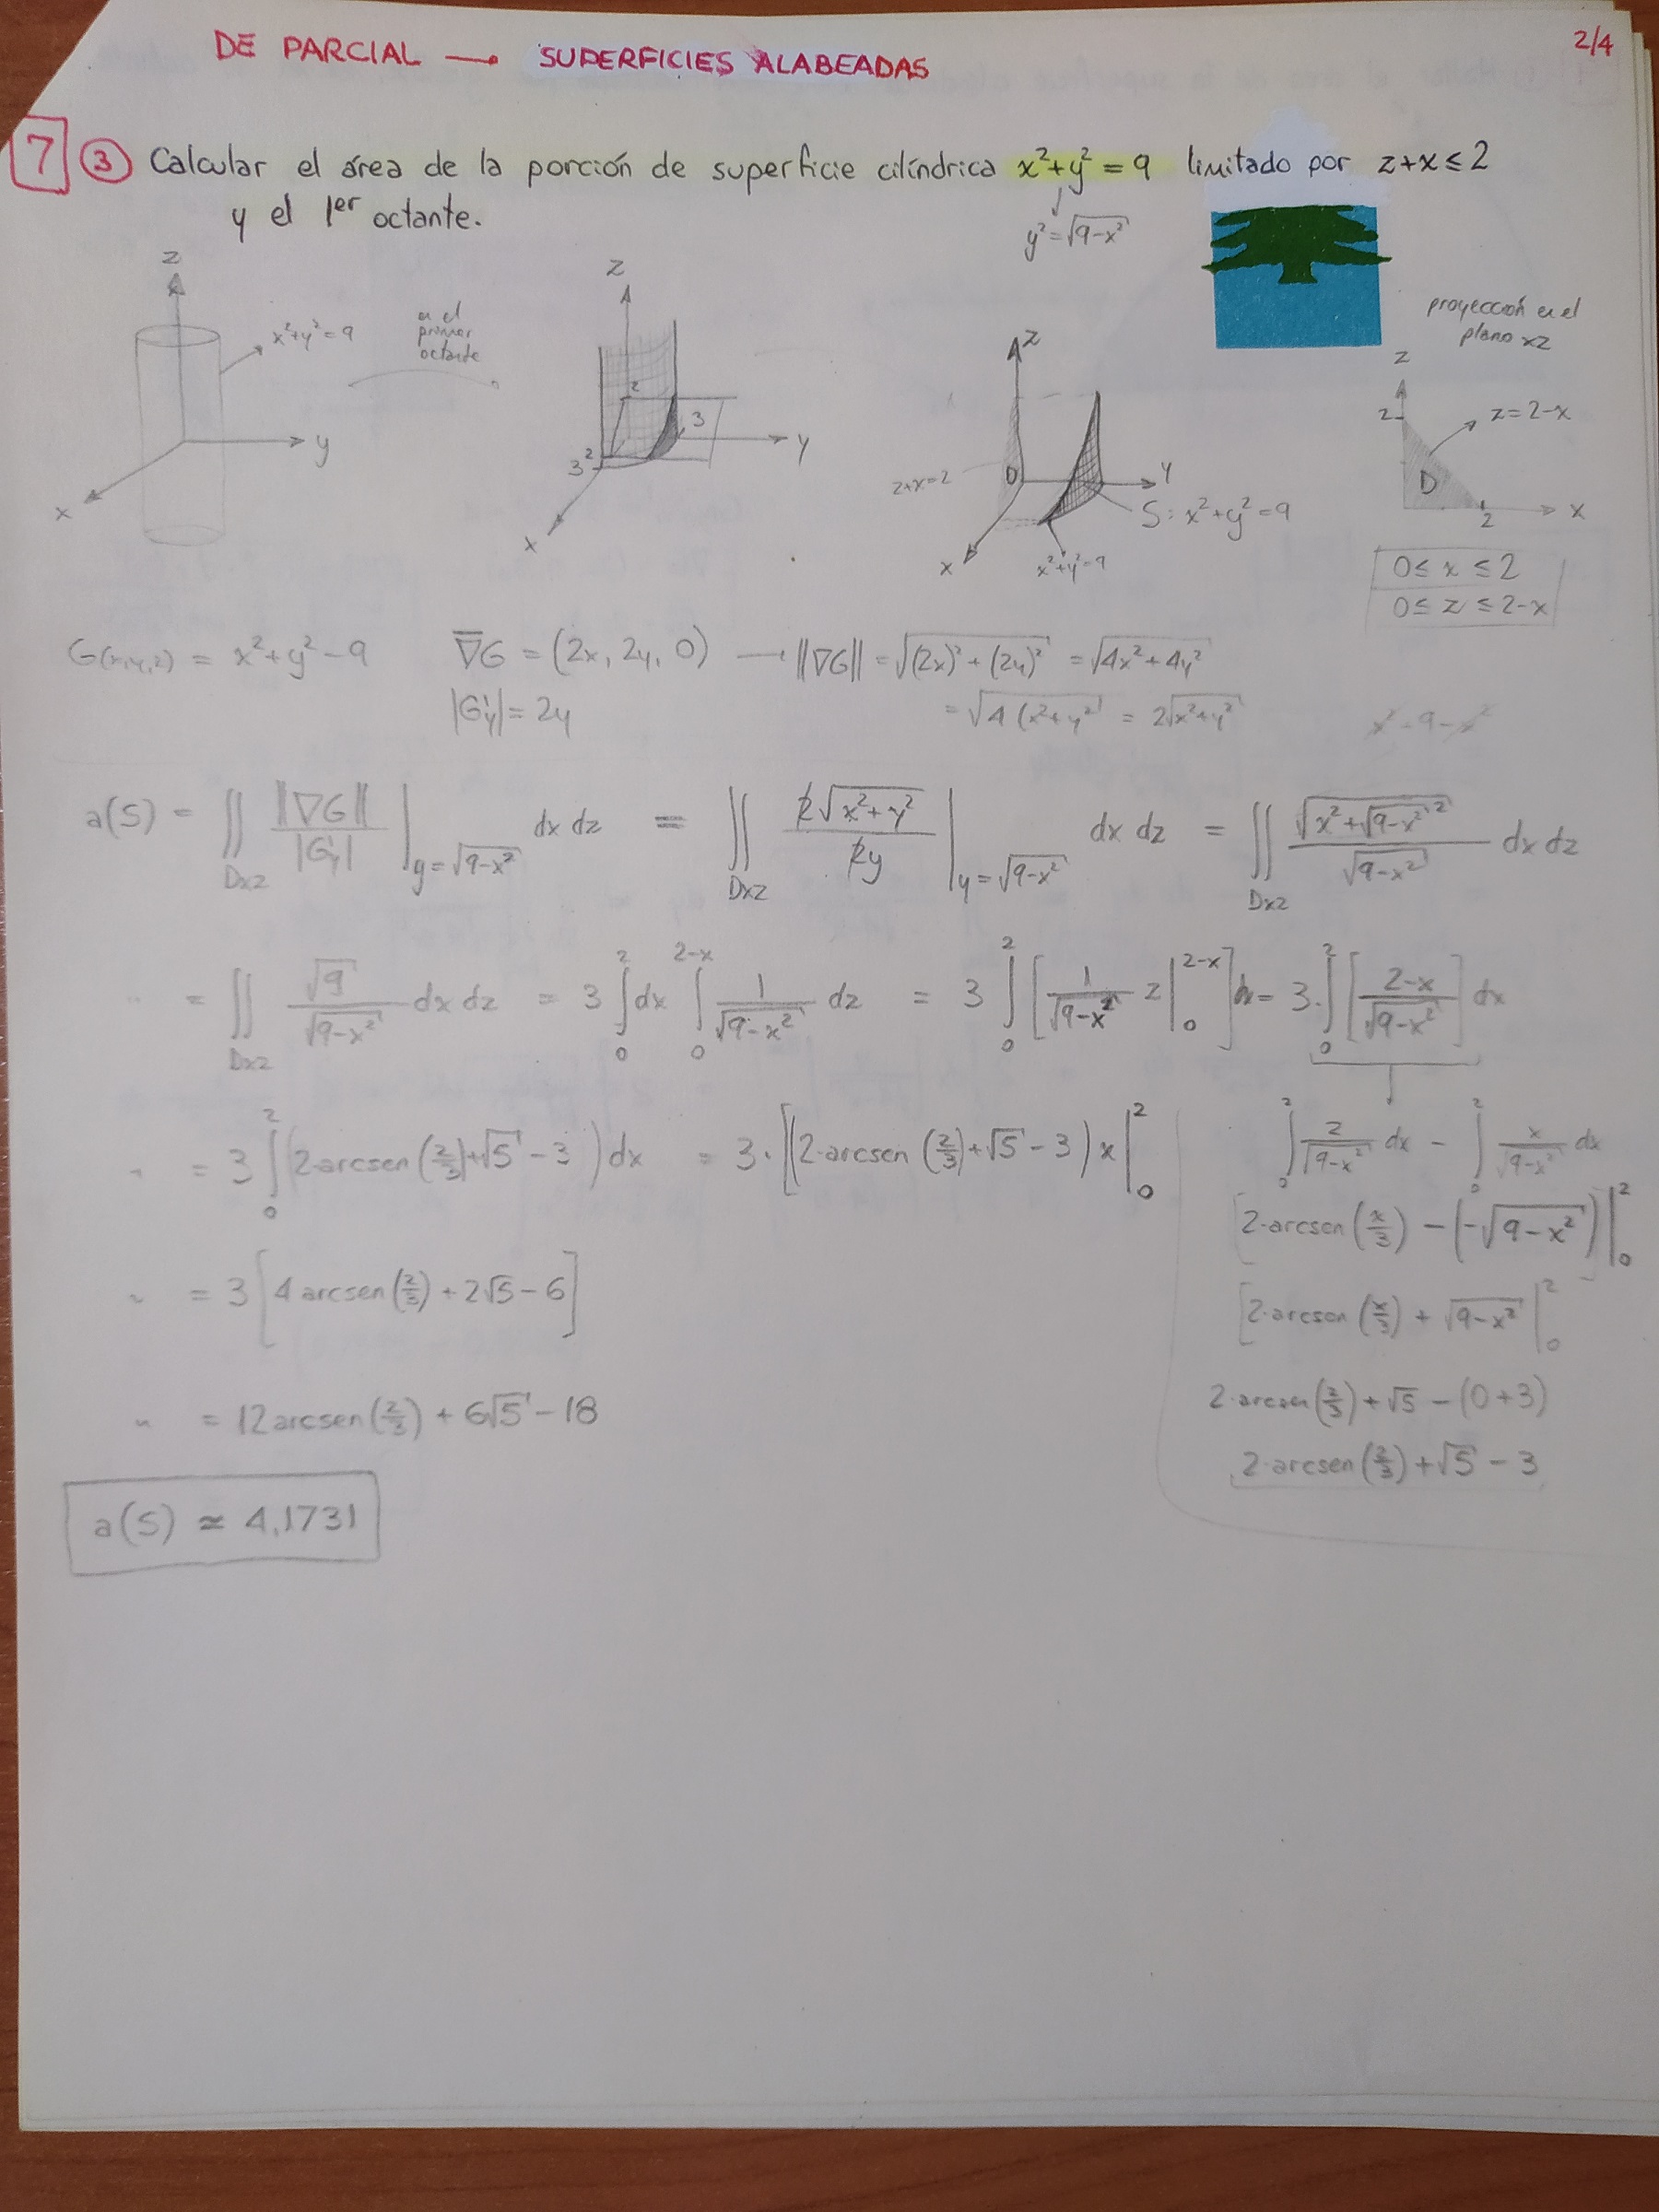 DE PARCIAL → SUPERFICIES ALABEADAS
2/4
7 ③ Calcular el área de la porción de superficie cilíndrica x²+y²=9 limitado por z+x≤2
y el 1er octante.
y²=√(9-x²)
z
x²+y²=9
y
x
en el primer octante
z
2
3
3
2
y
x
z
z+x=2
D
y
S: x²+y²=9
x
x²+y²=9
proyección en el
plano xz
z
2
z=2-x
D
2
x
0≤x≤2
0≤z≤2-x
G(x,y,z) = x²+y²-9   ∇G = (2x, 2y, 0) → ||∇G|| = √((2x)²+(2y)²) = √(4x²+4y²)
|G'y| = 2y   = √(4(x²+y²)) = 2√(x²+y²)
x²-9-x²
a(S) = ∬Dxz ||∇G||/|G'y| |y=√(9-x²) dx dz = ∬Dxz 2√(x²+y²)/2y |y=√(9-x²) dx dz = ∬Dxz √(x²+√(9-x²)²)/√(9-x²) dx dz
" = ∬Dxz √9/√(9-x²) dx dz = 3 ∫₀² dx ∫₀^(2-x) 1/√(9-x²) dz = 3 ∫₀² [1/√(9-x²) z |₀^(2-x)] dx = 3·∫₀² [(2-x)/√(9-x²)] dx
" = 3 ∫₀² (2·arcsen(2/3)+√5-3) dx = 3·[(2·arcsen(2/3)+√5-3)x |₀²
" = 3 [4 arcsen(2/3)+2√5-6]
" = 12 arcsen(2/3) + 6√5 - 18
a(S) ≃ 4,1731
∫₀² 2/√(9-x²) dx - ∫₀² x/√(9-x²) dx
[2·arcsen(x/3) - (-√(9-x²))] |₀²
[2·arcsen(x/3) + √(9-x²) |₀²
2·arcsen(2/3) + √5 - (0+3)
2·arcsen(2/3) + √5 - 3